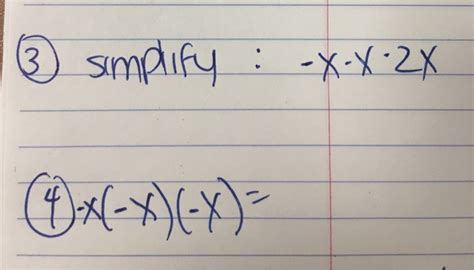 ③ simplify : -x-x·2x
④ -x(-x)(-x)=